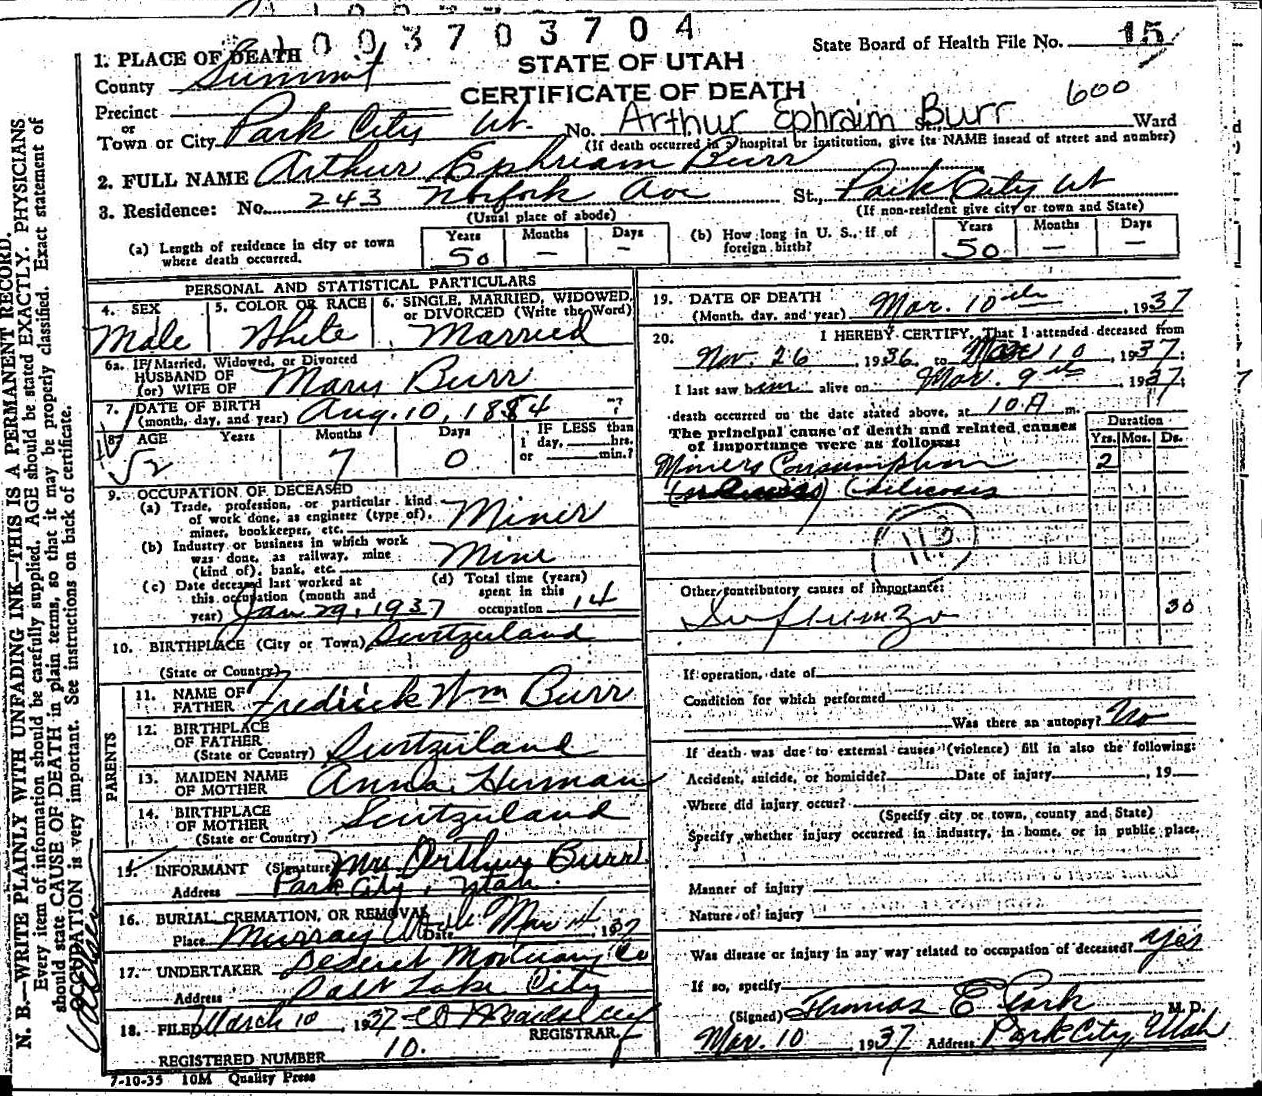 1003703704
State Board of Health File No. 15
1. PLACE OF DEATH
STATE OF UTAH
County Summit
CERTIFICATE OF DEATH
Precinct
or
Town or City Park City Ut. No. Arthur Ephraim Burr 600 St., Ward
(If death occurred in a hospital or institution, give its NAME insead of street and number)
2. FULL NAME Arthur Ephriam Burr
3. Residence: No. 243 Norfork Ave St., Park City Ut
(Usual place of abode) (If non-resident give city or town and State)
(a) Length of residence in city or town where death occurred. Years 50 Months — Days —
(b) How long in U. S., if of foreign birth? Years 50 Months — Days —
PERSONAL AND STATISTICAL PARTICULARS
4. SEX Male
5. COLOR OR RACE White
6. SINGLE, MARRIED, WIDOWED, or DIVORCED (Write the Word) Married
6a. If Married, Widowed, or Divorced
HUSBAND OF
(or) WIFE OF Mary Burr
7. DATE OF BIRTH
(month, day, and year) Aug. 10, 1884 ?
8. AGE Years 52 Months 7 Days 0
IF LESS than 1 day, hrs. or min.?
9. OCCUPATION OF DECEASED
(a) Trade, profession, or particular kind of work done, as engineer (type of), miner, bookkeeper, etc. Miner
(b) Industry or business in which work was done, as railway, mine (kind of), bank, etc. Mine
(c) Date deceased last worked at this occupation (month and year) Jan 29, 1937
(d) Total time (years) spent in this occupation 14
10. BIRTHPLACE (City or Town) Switzerland
(State or Country)
PARENTS
11. NAME OF FATHER Fredrick Wm Burr
12. BIRTHPLACE OF FATHER
(State or Country) Switzerland
13. MAIDEN NAME OF MOTHER Anna Herman
14. BIRTHPLACE OF MOTHER
(State or Country) Switzerland
15. INFORMANT (Signature) Mrs Arthur Burr
Address Park City, Utah.
16. BURIAL, CREMATION, OR REMOVAL
Place Murray Ut Date Mar 14 1937
17. UNDERTAKER Deseret Mortuary Co
Address Salt Lake City
18. FILED March 10 1937
REGISTRAR
REGISTERED NUMBER 10.
7-10-35 10M Quality Press
19. DATE OF DEATH
(Month, day, and year) Mar. 10th, 1937
20. I HEREBY CERTIFY, That I attended deceased from
Nov. 26, 1936, to Mar 10, 1937;
I last saw him alive on Mar. 9th 1937;
death occurred on the date stated above, at 10 A m.
The principal cause of death and related causes of importance were as follows:
Duration
Yrs. Mos. Ds.
Miners Consumption 2
(silicosis)
113
Other contributory causes of importance:
Influenza 30
If operation, date of
Condition for which performed
Was there an autopsy? No
If death was due to external causes (violence) fill in also the following:
Accident, suicide, or homicide? Date of injury, 19
Where did injury occur?
(Specify city or town, county and State)
Specify whether injury occurred in industry, in home, or in public place.
Manner of injury
Nature of injury
Was disease or injury in any way related to occupation of deceased? Yes
If so, specify
(Signed) Thomas E M. D.
Mar. 10 1937 Address Park City, Utah
N. B.—WRITE PLAINLY WITH UNFADING INK—THIS IS A PERMANENT RECORD.
Every item of information should be carefully supplied. AGE should be stated EXACTLY. PHYSICIANS
should state CAUSE OF DEATH in plain terms, so that it may be properly classified. Exact statement of
OCCUPATION is very important. See instructions on back of certificate.